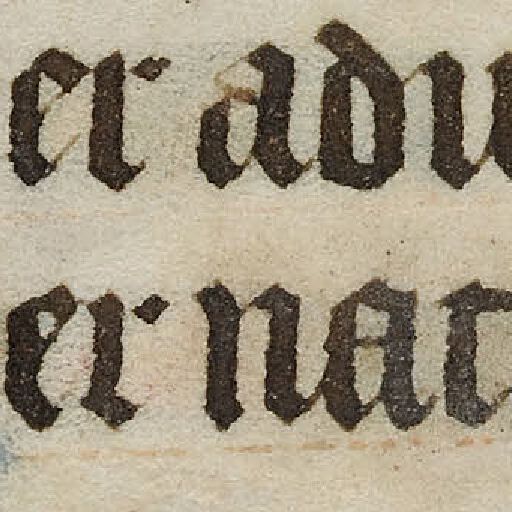 er adu
er nat